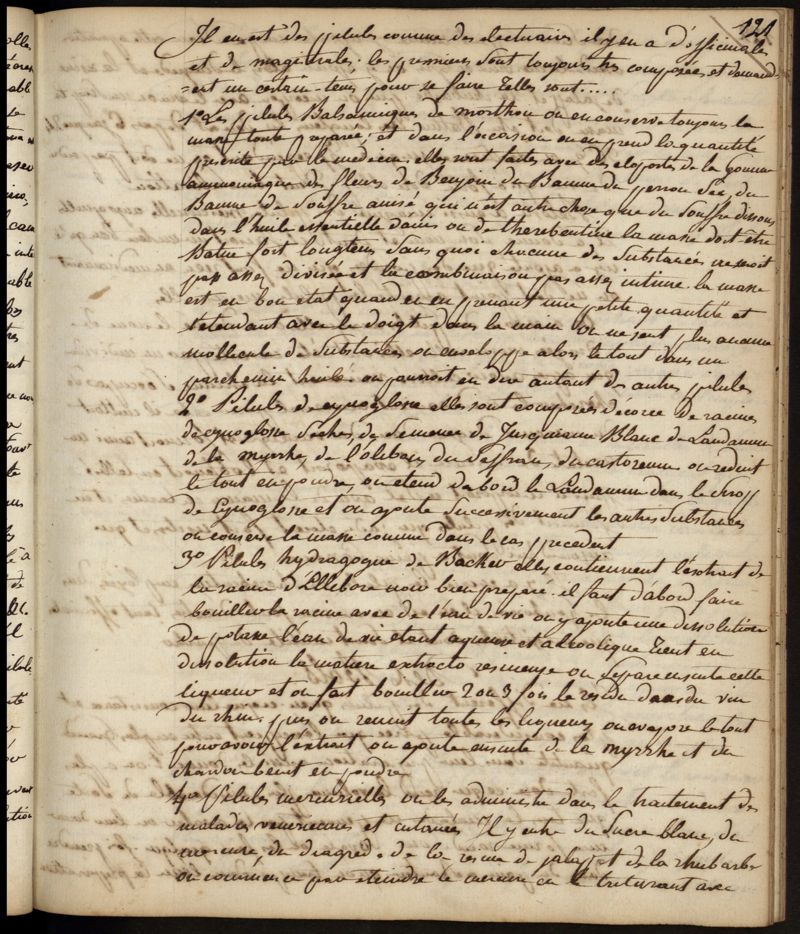 121
Il en est des pilules comme des electuaires il y en a d'officinales
et de magistrales. les premieres sont toujours très composées et demand-
=ent un certain tems pour se faire telles sont.....
1º Les pilules Balsamiques de morthon on en conserve toujours la
masse toute preparée; et dans l'occasion on en prend la quantité
prescrite par le medecin. elles sont faites avec des cloportes de la Gomme
ammoniaque des fleurs de Benjoin du Baume du perrou sec, du
Baume de Souffre anisé qui n'est autre chose que du Souffre dissous
dans l'huile essentielle d'anis ou de therebentine la masse doit être
Batue fort longtems sans quoi chacune des substances ne seroit
pas assez divisée et la combinaison pas assez intime. la masse
est en bon etat quand en en prenant une petite quantité et
l'etendant avec le doigt dans la main on ne sent plus aucune
mollecule de substances on enveloppe alors le tout dans un
parchemin huilé on pourroit en dire autant des autres pilules
2º Pilules de cynoglosse elles sont composées d'ecorce de racines
de cynoglosse seches, de semence de Jusquiame Blanc de Laudanum
de la myrrhe, de l'oliban du saffran, du castoreum on reduit
le tout en poudre, on etend d'abord le Laudanum dans le sirop
de Cynoglosse et on ajoute successivement les autres substances
on conserve la masse comme dans le cas precedent
3º Pilules hydragogue de Backer elles contiennent l'extrait de
la racine d'Ellebore noir bien preparé. il faut d'abord faire
bouillir la racine avec de l'eau de vie on y ajoute une dissolution
de potasse l'eau de vie etant aqueuse et alcoolique tient en
dissolution la matiere extracto resineuse on separe ensuite cette
liqueur et on fait bouillir 2 ou 3 fois le residu dans du vin
du rhin. puis on reunit toutes les liqueurs on evapore le tout
pour avoir l'extrait on ajoute ensuite de la myrrhe et du
chardon benit en poudre
4º Pilules mercurielles on les administre dans le traitement des
malades veneriennes et cutanées Il y entre du Sucre blanc, du
mercure, du diagrede de la resine de jalap et de la rhubarbe
on commence par eteindre le mercure en le triturant avec